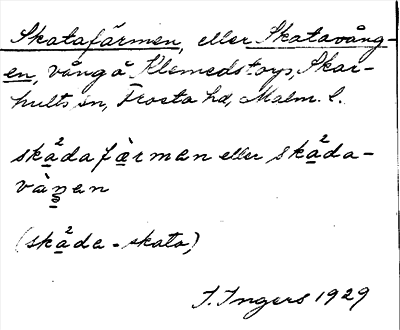 Skatafärmen, eller Skatavång-
en, vång å Klemedstorp, Skar-
hults sn, Frosta hd, Malm. l.
ska²dafàrman eller ska²da-
vàŋan
(ska²da = skata)
I. Ingers 1929